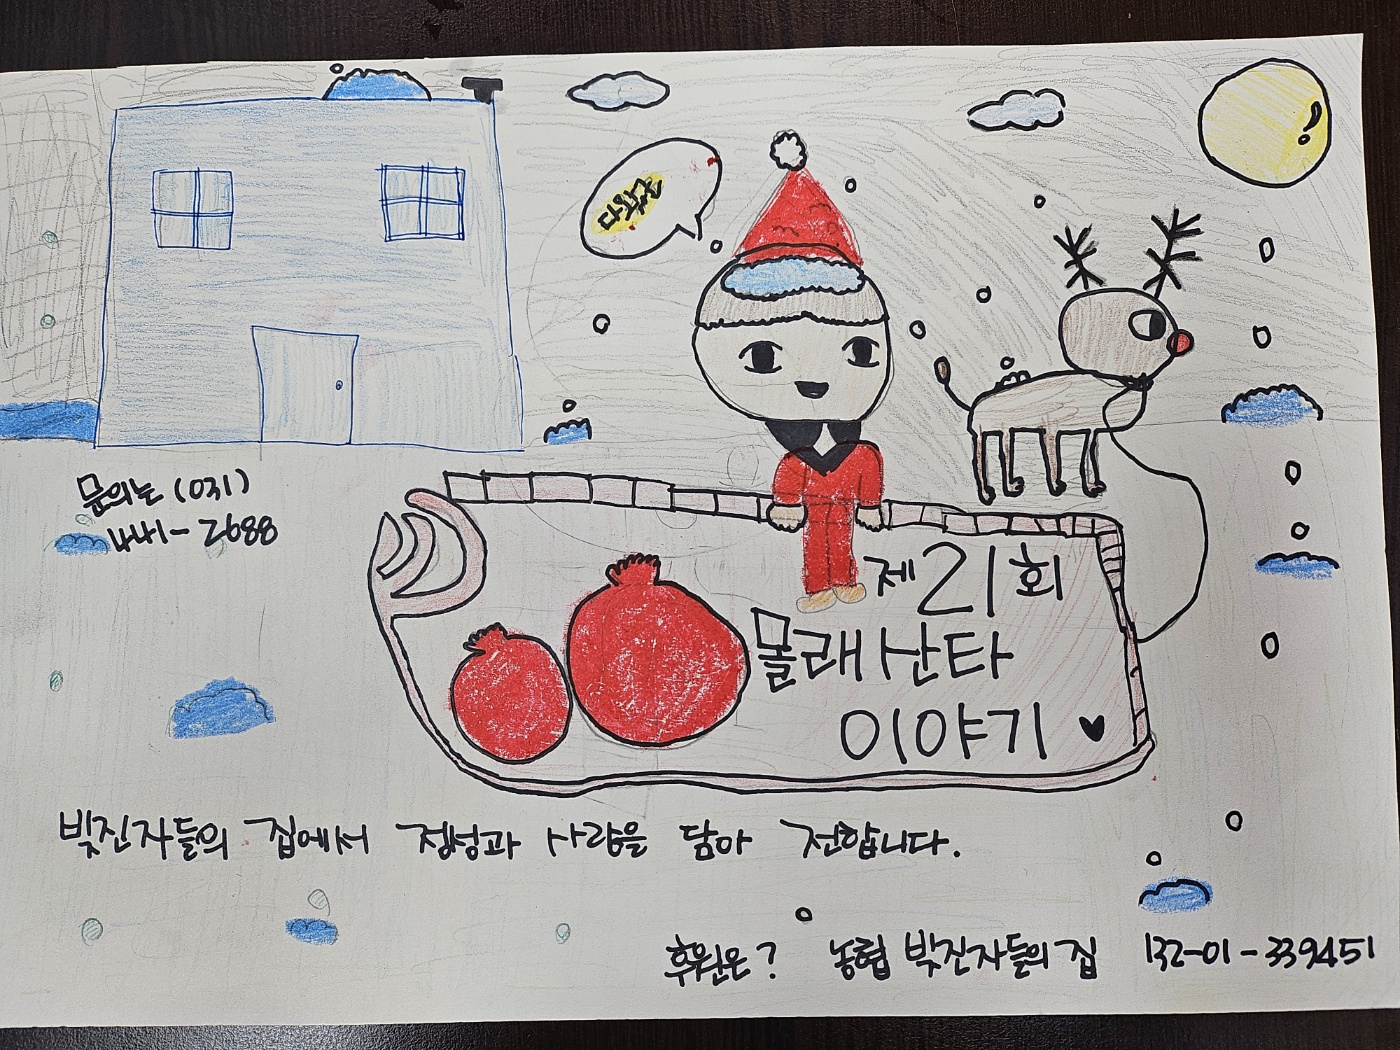 문의는 (031)
441-2688
제21회
몰래산타
이야기 ♥
빚진자들의 집에서 정성과 사랑을 담아 전합니다.
후원은? 농협 빚진자들의 집 132-01-339451